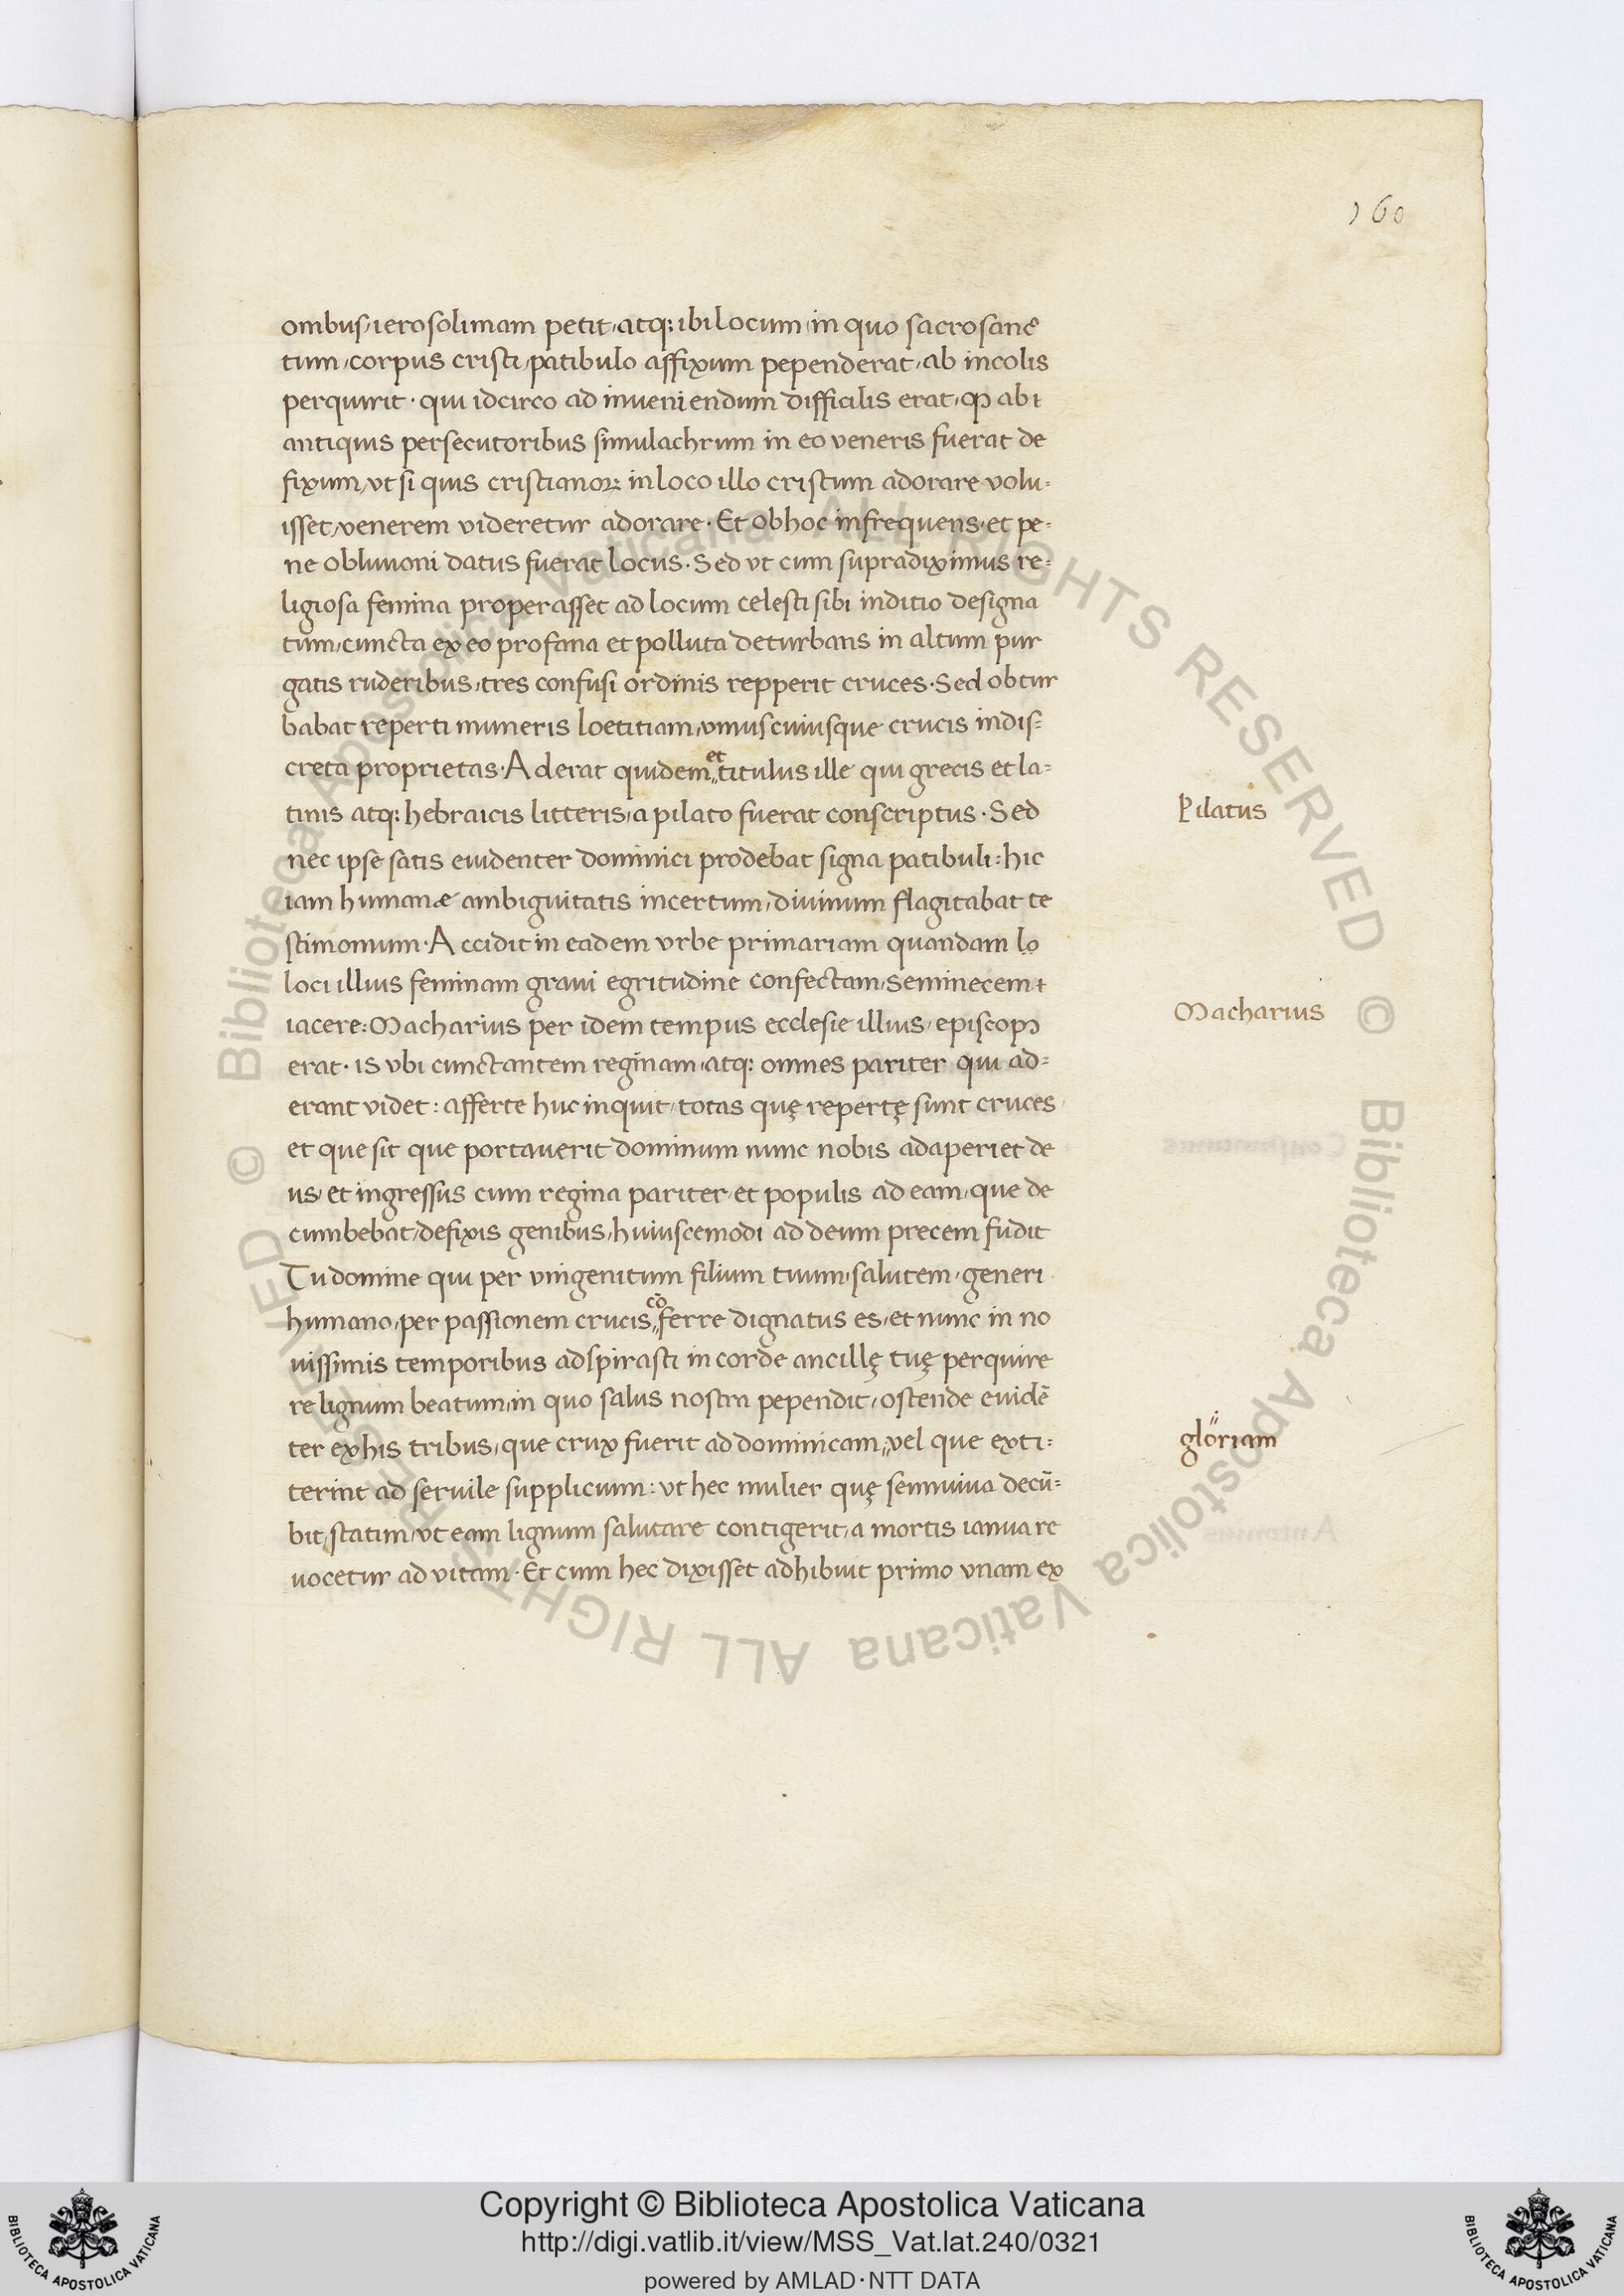 160
ombus, ierosolimam petit, atq; ibi locum, in quo sacrosanc̄
tum, corpus cristi, patibulo affixum pependerat, ab incolis
perquirit · qui idcirco ad inueniendum difficilis erat, ꝙ ab ı
antiquis persecutoribus simulachrum in eo veneris fuerat de
fixum, vt si quis cristianoꝝ in loco illo cristum adorare volu-
isset, venerem videretur adorare · Et ob hoc infrequens, et pe-
ne obliuioni datus fuerat locus · Sed vt cum supradiximus re-
ligiosa femina properasset ad locum celesti sibi inditio designa
tum, cuncta ex eo profana et polluta deturbans in altum pur
gatis ruderibus, tres confusi ordinis repperit cruces · Sed obtur
babat reperti muneris loetitiam, vniuscuiusque crucis indis-
creta proprietas · Aderat quidem et titulus ille qui grecis et la-
tinis atq; hebraicis litteris, a pilato fuerat conscriptus · Sed
Pilatus
nec ipse satis euidenter dominici prodebat signa patibuli: hic
iam humanæ ambiguitatis incertum, diuinum flagitabat te
stimonium · Accidit in eadem vrbe primariam quandam lo
loci illius feminam graui egritudine confectam, seminecem ı
iacere: Macharius per idem tempus ecclesie illius, episcopꝰ
Macharius
erat · is vbi cunctantem reginam, atq; omnes pariter qui ad-
erant videt: afferte huc inquit, totas quę repertę sunt cruces,
et que sit que portauerit dominum nunc nobis adaperiet de
us, et ingressus cum regina pariter, et populis ad eam, que de
cumbebat, defixis genibus, huiuscemodi ad deum precem fudit
Tu domine qui per vnigenitum filium tuum, salutem, generi
humano, per passionem crucis cō ferre dignatus es, et nunc in no
uissimis temporibus adspirasti in corde ancillę tuę perquire
re lignum beatum, in quo salus nostra pependit, ostende euidē
ter ex his tribus, que crux fuerit ad dominicam,, vel que exti-
gloriam
terint ad seruile supplicium: vt hec mulier quę semiuiua decū-
bit, statim, vt eam lignum salutare contigerit, a mortis ianua re
uocetur ad vitam · Et cum hec dixisset adhibuit primo vnam ex
© Biblioteca Apostolica Vaticana ALL RIGHTS RESERVED © Biblioteca Apostolica Vaticana ALL RIGHTS RESERVED
Copyright © Biblioteca Apostolica Vaticana
http://digi.vatlib.it/view/MSS_Vat.lat.240/0321
powered by AMLAD·NTT DATA
BIBLIOTECA APOSTOLICA VATICANA
BIBLIOTECA APOSTOLICA VATICANA